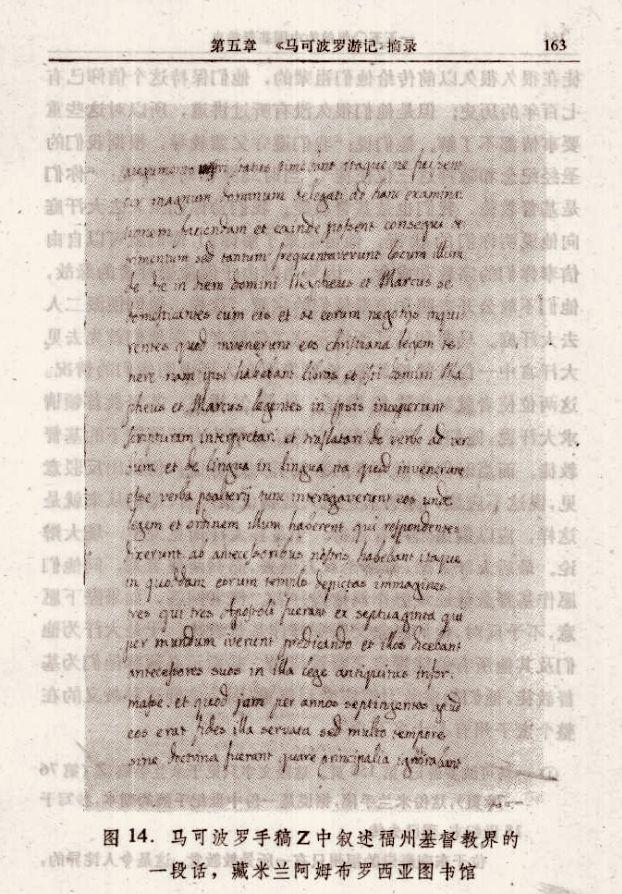 第五章 《马可波罗游记》摘录 163
timebant itaque ne fuissent
magnum dominum delegati ad hanc examina:
tionem faciendam et exinde possent consequi de
trimentum sed tantum frequentaverunt locum illum
de die in diem domini Mapheus et Marcus se
domesticantes cum eis et de eorum negotijs inqui
rentes quod invenerunt eos christiana legem te
nere nam ipsi habebant libros et isti domini Ma
pheus et Marcus legentes in ipsis inceperunt
scripturam interpretari et traslatari de verbo ad ver
bum et de lingua in lingua ita quod invenerunt
esse verba psalterij tunc interogaverunt eos unde
legem et ordinem illum haberent qui respondentes
dixerunt ab antecessoribus nostris habebant itaque
in quodam eorum templo depictas immagines
tres qui tres Apostoli fuerant ex septuaginta qui
per mundum iverunt predicando et illos dicebant
antecessores suos in illa lege antiquitus infor:
masse. et quod jam per annos septingentos apud
eos erat fides illa servata sed multo tempore
sine doctrina fuerant quare principalia ignorabant
图 14. 马可波罗手稿Z中叙述福州基督教界的
一段话,藏米兰阿姆布罗西亚图书馆